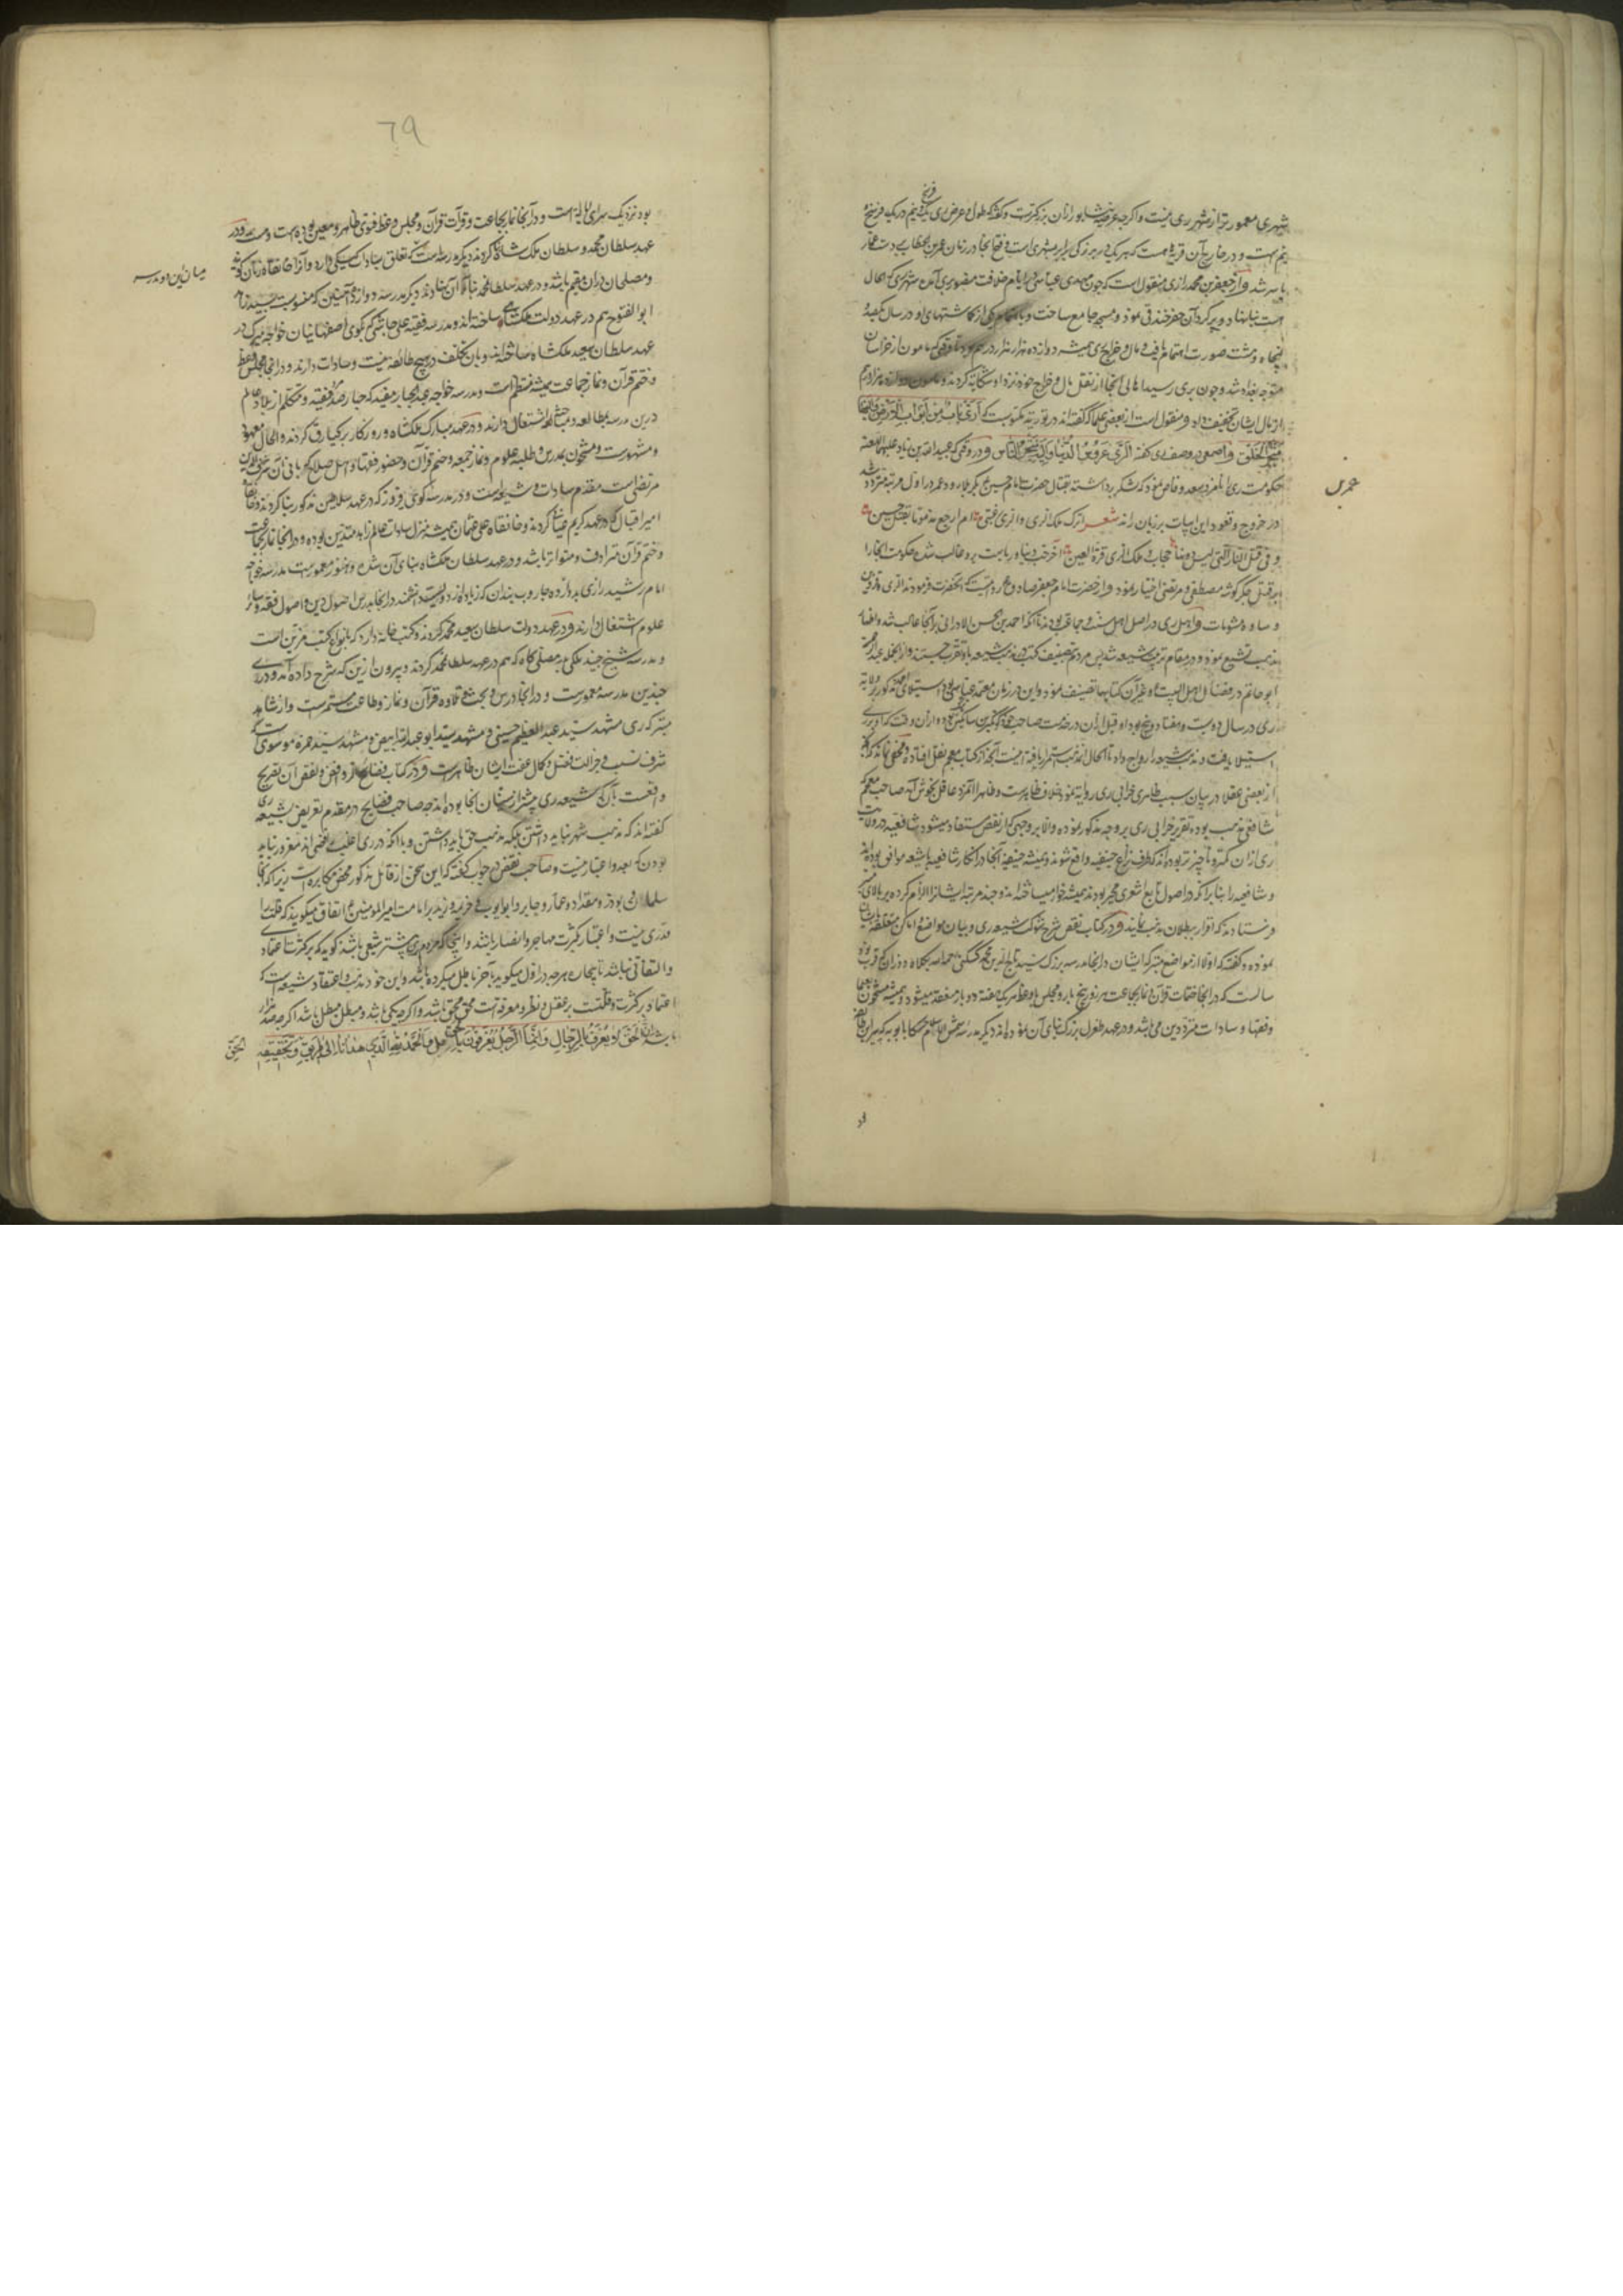 شهری معمورتر از شهر ری نیست و اگرچه عرصه نیشابور از آن بزرگترست و گفته که طول و عرض ری یک فرسخ و نیم در یک فرسخ و
نیم است و در خارج آن قریه هست که هر یک در بزرگی برابر شهری است و فتح آنجا در زمان عمر بن الخطاب بدست عمار
یاسر شد و از جعفر بن محمد رازی منقول است که چون مهدی عباسی در ایام خلافت منصور بری آمد شهر ری که الحال
است بنا نهاد و بر گرد آن حفر خندقی نمود و مسجد جامع ساخت و یکی از گماشتهای او در سال یکصد و
پنجاه و هشت صورت اتمام یافت و مال و خراج ری همیشه دوازده هزار هزار درهم بود تا وقتی که مامون از خراسان
متوجه بغداد شد و چون بری رسید اهالی آنجا از ثقل مال و خراج خود نزد او شکایت کردند و مامون دو هزار هزار درهم
از مال ایشان تخفیف داد و منقول است از بعضی علما که گفته اند در توریة مکتوبست که الری باب من ابواب الارض و الیها
متجر الخلق و اصمعی در وصف ری گفته الری عروس الدنیا و الیه متجر الناس و در وقتی که عبیدالله بن زیاد علیه اللعنه
حکومت ری را نامزد عمر سعد وقاص نمود که لشکر برداشته بقتال حضرت امام حسین بکربلا رود عمر در اول مرتبه متردد شد
در خروج و قعود این ابیات بر زبان راند شعر اترک ملک الری و الری رغبتی ام ارجع مذموما بقتل حسین
و فی قتله النار التی لیس دونها حجاب و ملک الری قرة العین آخر حب دنیا و ریاست برو غالب شد و حکومت آنجا را
بر قتل جگر گوشه مصطفی و مرتضی اختیار نمود و از حضرت امام جعفر صادق مرویست که آنحضرت فرمودند الری و قزوین
و ساوه مشومات و اهل ری در اصل اهل سنت و جماعت بودند تا آنکه احمد بن الحسن المادرانی بر آنجا غالب شد و اظهار
مذهب تشیع نمود و در مقام تربیت شیعه شد پس مردم بتصنیف کتب در مذهب شیعه باو تقرب جستند و از آنجمله عبدالرحمن
ابو حاتم در فضایل اهل البیت و غیر آن کتابها تصنیف نمود و این در زمان معتمد عباسی بود و استیلای احمد مذکور بر ولایة
ری در سال دویست و هفتاد و پنج بود و او قبل از آن در خدمت صاحب کوتکین بن ساتکین بود و از آن وقت که او بر ری
استیلا یافت و مذهب شیعه را رواج داد تا الحال آن مذهب استمرار یافته است آنچه از کتاب معجم نقل افتاد و مخفی نماند که آنچه
از بعضی عقلا در بیان سبب ظاهری خرابی ری روایة نمود خلاف ظاهرست و ظاهرا آنمرد عاقل بخوش آمد صاحب معجم که
شافعی مذهب بوده تقریر خرابی ری بر وجه مذکور نموده والا بر وجهی که از نقض مستفاد میشود شافعیه در ولایت
ری از آن کمتر و ناچیز تر بوده اند که طرف نزاع حنفیه واقع شوند و همیشه حنفیه آنجا در انکار شافعیه با شیعه موافق بوده اند
و شافعیه را بنابر آنکه در اصول تابع اشعری مجبر بودند همیشه خوار میساخته اند و چند مرتبه ایشان را الزام کرده بر بالای منبر
فرستادند که اقرار ببطلان مذهب نمایند و در کتاب نقض شرح شوکت شیعه ری و بیان مواضع و اماکن متعلقه بایشان
نموده و گفته که اولا از مواضع متبرکه ایشان در آنجا مدرسه بزرگ سید تاج الدین محمد گیلکی رحمه الله بکلاه دوزان که قرب نود
سالست که در آنجا ختمات قرآن و نماز بجماعت هر روز پنج بار و مجلس وعظ هر یک هفته دو بار منعقد میشود و همیشه مشحون بعلما
و فقها و سادات متردد دین می باشد و در عهد طغرل بزرگ بنای آن نموده اند دیگر مدرسه شمس الاسلام حسکا بابویه که پیر این طایفه
فرسخ
عمر ل
بود
٦٩
بود نزدیک سرای ایالت است و در آنجا نماز بجماعت و قرآت قرآن و مجلس وعظ و فتوی ظاهر و معین بوده است و هست و در
عهد سلطان محمد و سلطان ملک شاه کرده اند دیگر مدرسه است که تعلق بسادات کیسکی دارد و آنرا خانقاه زنان گویند
و مصلحان در آن مقیم باشند و در عهد سلطان محمد بنای آن نهادند دیگر مدرسه دروازه آهنین که منسوبست بسید زاهد
ابو الفتوح هم در عهد دولت ملکشاهی ساخته اند و مدرسه فقیه علی جاستی بکوی اصفهانیان خواجه میرک در
عهد سلطان سعید ملکشاه ساخته اند و بآن تکلف در هیچ طایفه نیست و سادات دارند و در آنجا مجلس وعظ
و ختم قرآن و نماز جماعت همیشه منتظم است و مدرسه خواجه عبدالجبار مفید که چهارصد فقیه و متکلم از بلاد عالم
درین مدرسه بمطالعه و مباحثه اشتغال دارند و در عهد مبارک ملکشاه و روزگار برکیارق کردند و الحال معمور
و مشهورست و مشحون بمدرس و طلبه علوم و نماز جمعه و ختم قرآن و حضور فقها و اهل صلاح که بانی آن شرف الدین
مرتضی است مقدم سادات و شیعه است و در مدرسه کوی فیروز که در عهد سلاطین مذکور بنا کردند و خانقاه
امیر اقبال که در عهد کریم غیاثی کردند و خانقاه علی عثمان همیشه منزل سادات عالم زاهد متدین بوده و در آنجا نماز بجماعت
و ختم قرآن مترادف و متواتر باشد و در عهد سلطان ملکشاه بنای آن شد و هنوز معمورست مدرسه خواجه
امام رشید رازی بدروازه جاروب بندان که زیاده از دویست دانشمند در آنجا بدرس اصول دین و اصول فقه و سایر
علوم اشتغال دارند و در عهد دولت سلطان سعید محمد کردند و کتب خانه دارد که بانواع کتب مزین است
و مدرسه شیخ حیدر مکی بدر مصلی گاه که هم در عهد سلطان محمد کردند و بیرون ازین که شرح داده آمد در ری
چندین مدرسه معمورست و در آنجا درس و بحث و تلاوه قرآن و نماز و طاعت مستمرست و از مشاهد
متبرکه ری مشهد سید عبدالعظیم حسینی و مشهد سید ابو عبدالله ابیض و مشهد سید حمزه موسوی است که
شرف نسب و جزالت فضل و کمال عفت ایشان ظاهرست و در کتاب فضایح الروافض و نقض آن تصریح
واقعست بآن که شیعه ری بیشتر از سنیان آنجا بوده اند چه صاحب فضایح در مقدم تعریض شیعه ری
گفته اند که مذهب شهر نباید داشتن بلکه مذهب حق باید داشتن و بآنکه در ری اغلب رافضی اند مغرور نباید
بودن که بعدد اعتبار نیست و صاحب نقض در جواب گفته که این سخن از قائل مذکور محض مکابره است زیرا که آنجا
سلمان و بوذر و مقداد و عمار و جابر و ابو ایوب و خزیمه و زید بر امامت امیر المؤمنین اتفاق میگویند که قلت را
قدری نیست و اعتبار کثرت مهاجر و انصار باشد و اینجا که مردم ری بیشتر شیعی باشند گوید که بر کثرت اعتماد
و التفاتی نباشد تا بیچاره هر چه در اول میگوید بآخر باطل میکرده باشد و این خود مذهب و اعتقاد شیعه است که
اعتماد بر کثرت و قلت بر عقل و نظر و معرفتست محق محق باشد و اگر چه یکی باشد و مبطل مبطل باشد اگر چه صد هزار
باشند ان الحق لا یعرف بالرجال و انما الرجال یعرفون بالحق الحمد لله الذی هدانا الی طریق و تحقیقه
میان این دو مدرسه
الحق